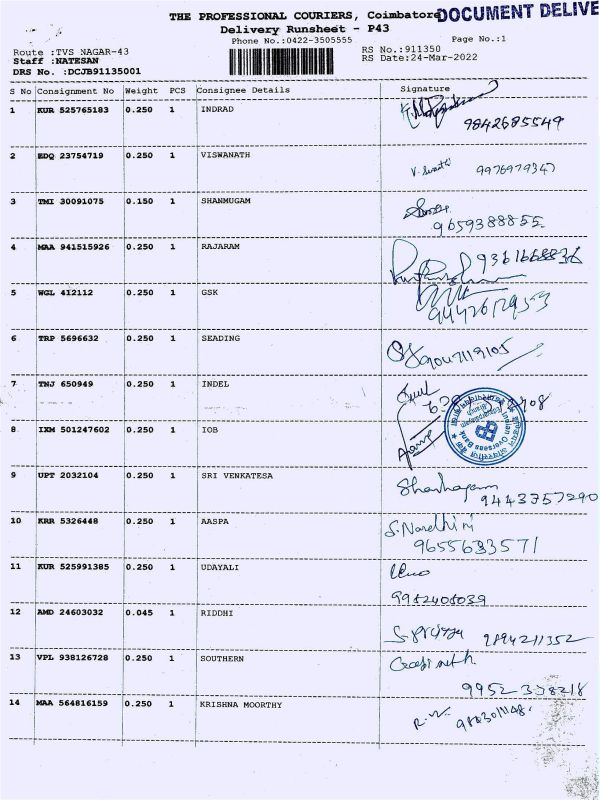 THE PROFESSIONAL COURIERS, Coimbatore
DOCUMENT DELIVE
Delivery Runsheet - P43
Phone No.:0422-3505555
Page No.:1
Route :TVS NAGAR-43
RS No.:911350
Staff :NATESAN
RS Date:24-Mar-2022
DRS No. :DCJB91135001
S No Consignment No Weight PCS Consignee Details Signature
1 KUR 525765183 0.250 1 INDRAD
9842685549
2 EDQ 23754719 0.250 1 VISWANATH
9976979347
3 TMI 30091075 0.150 1 SHANMUGAM
9659388855
4 MAA 941515926 0.250 1 RAJARAM
9361668836
5 WGL 412112 0.250 1 GSK
9442612953
6 TRP 5696632 0.250 1 SEADING
9047119105
7 TNJ 650949 0.250 1 INDEL
8 IXM 501247602 0.250 1 IOB
Indian Overseas Bank
9 UPT 2032104 0.250 1 SRI VENKATESA
9443757290
10 KRR 5326448 0.250 1 AASPA
S. Nandhini
9655633571
11 KUR 525991385 0.250 1 UDAYALI
9952408039
12 AMD 24603032 0.045 1 RIDDHI
S. priyya 9894211352
13 VPL 938126728 0.250 1 SOUTHERN
9952 338218
14 MAA 564816159 0.250 1 KRISHNA MOORTHY